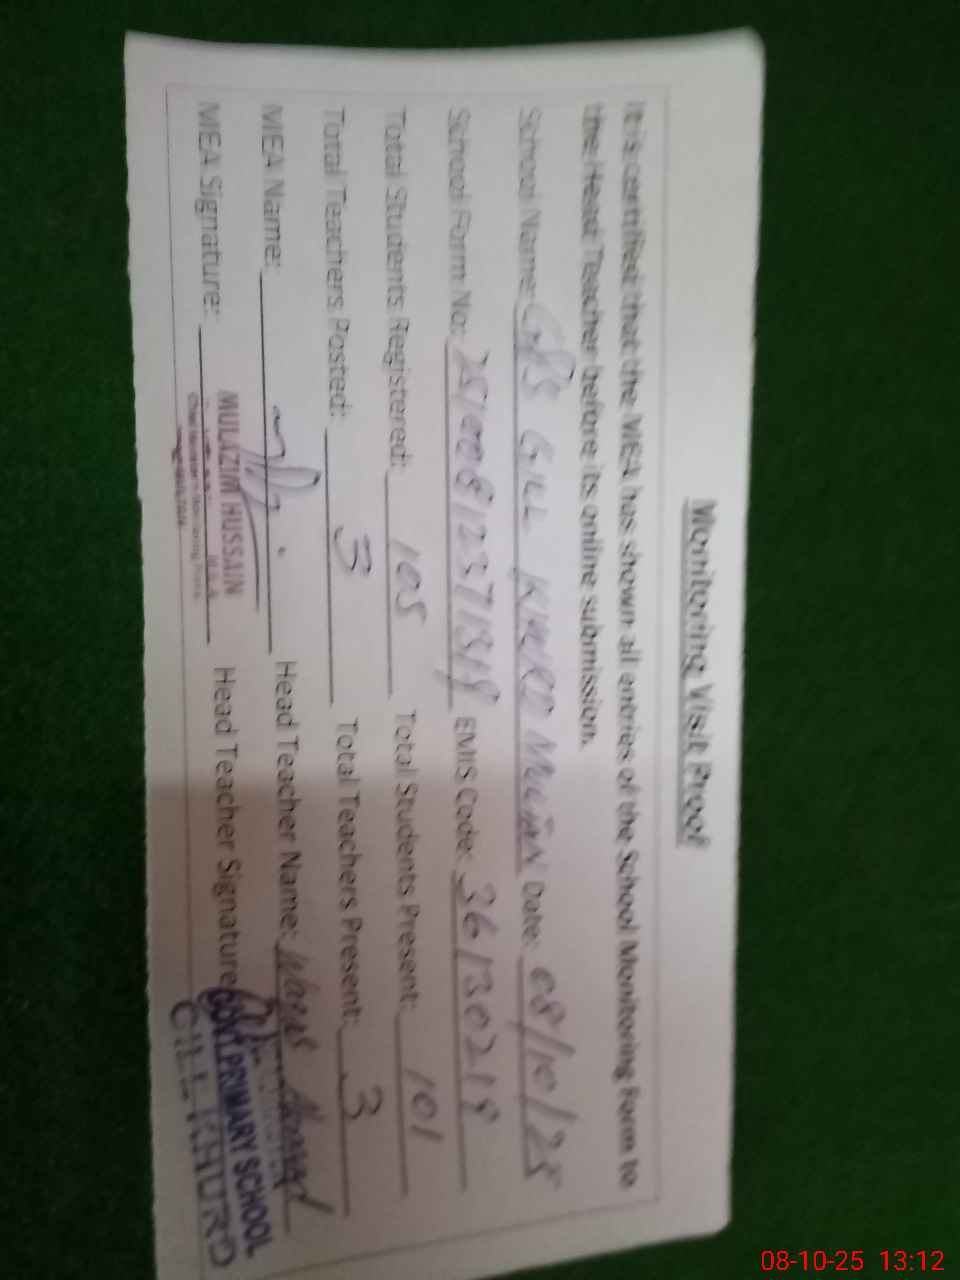 Monitoring Visit Proof
It is certified that the MEA has shown all entries of the School Monitoring Form to
the Head Teacher before its online submission.
School Name: GPS GILL KHURD Date: 08/10/25
School Form No: EMIS Code: 36130218
Total Students Registered: 105 Total Students Present: 101
Total Teachers Posted: 3 Total Teachers Present: 3
MEA Name: Head Teacher Name:
MEA Signature: Head Teacher Signature:
MULAZIM HUSSAIN
GOVT PRIMARY SCHOOL
GILL KHURD
08-10-25 13:12